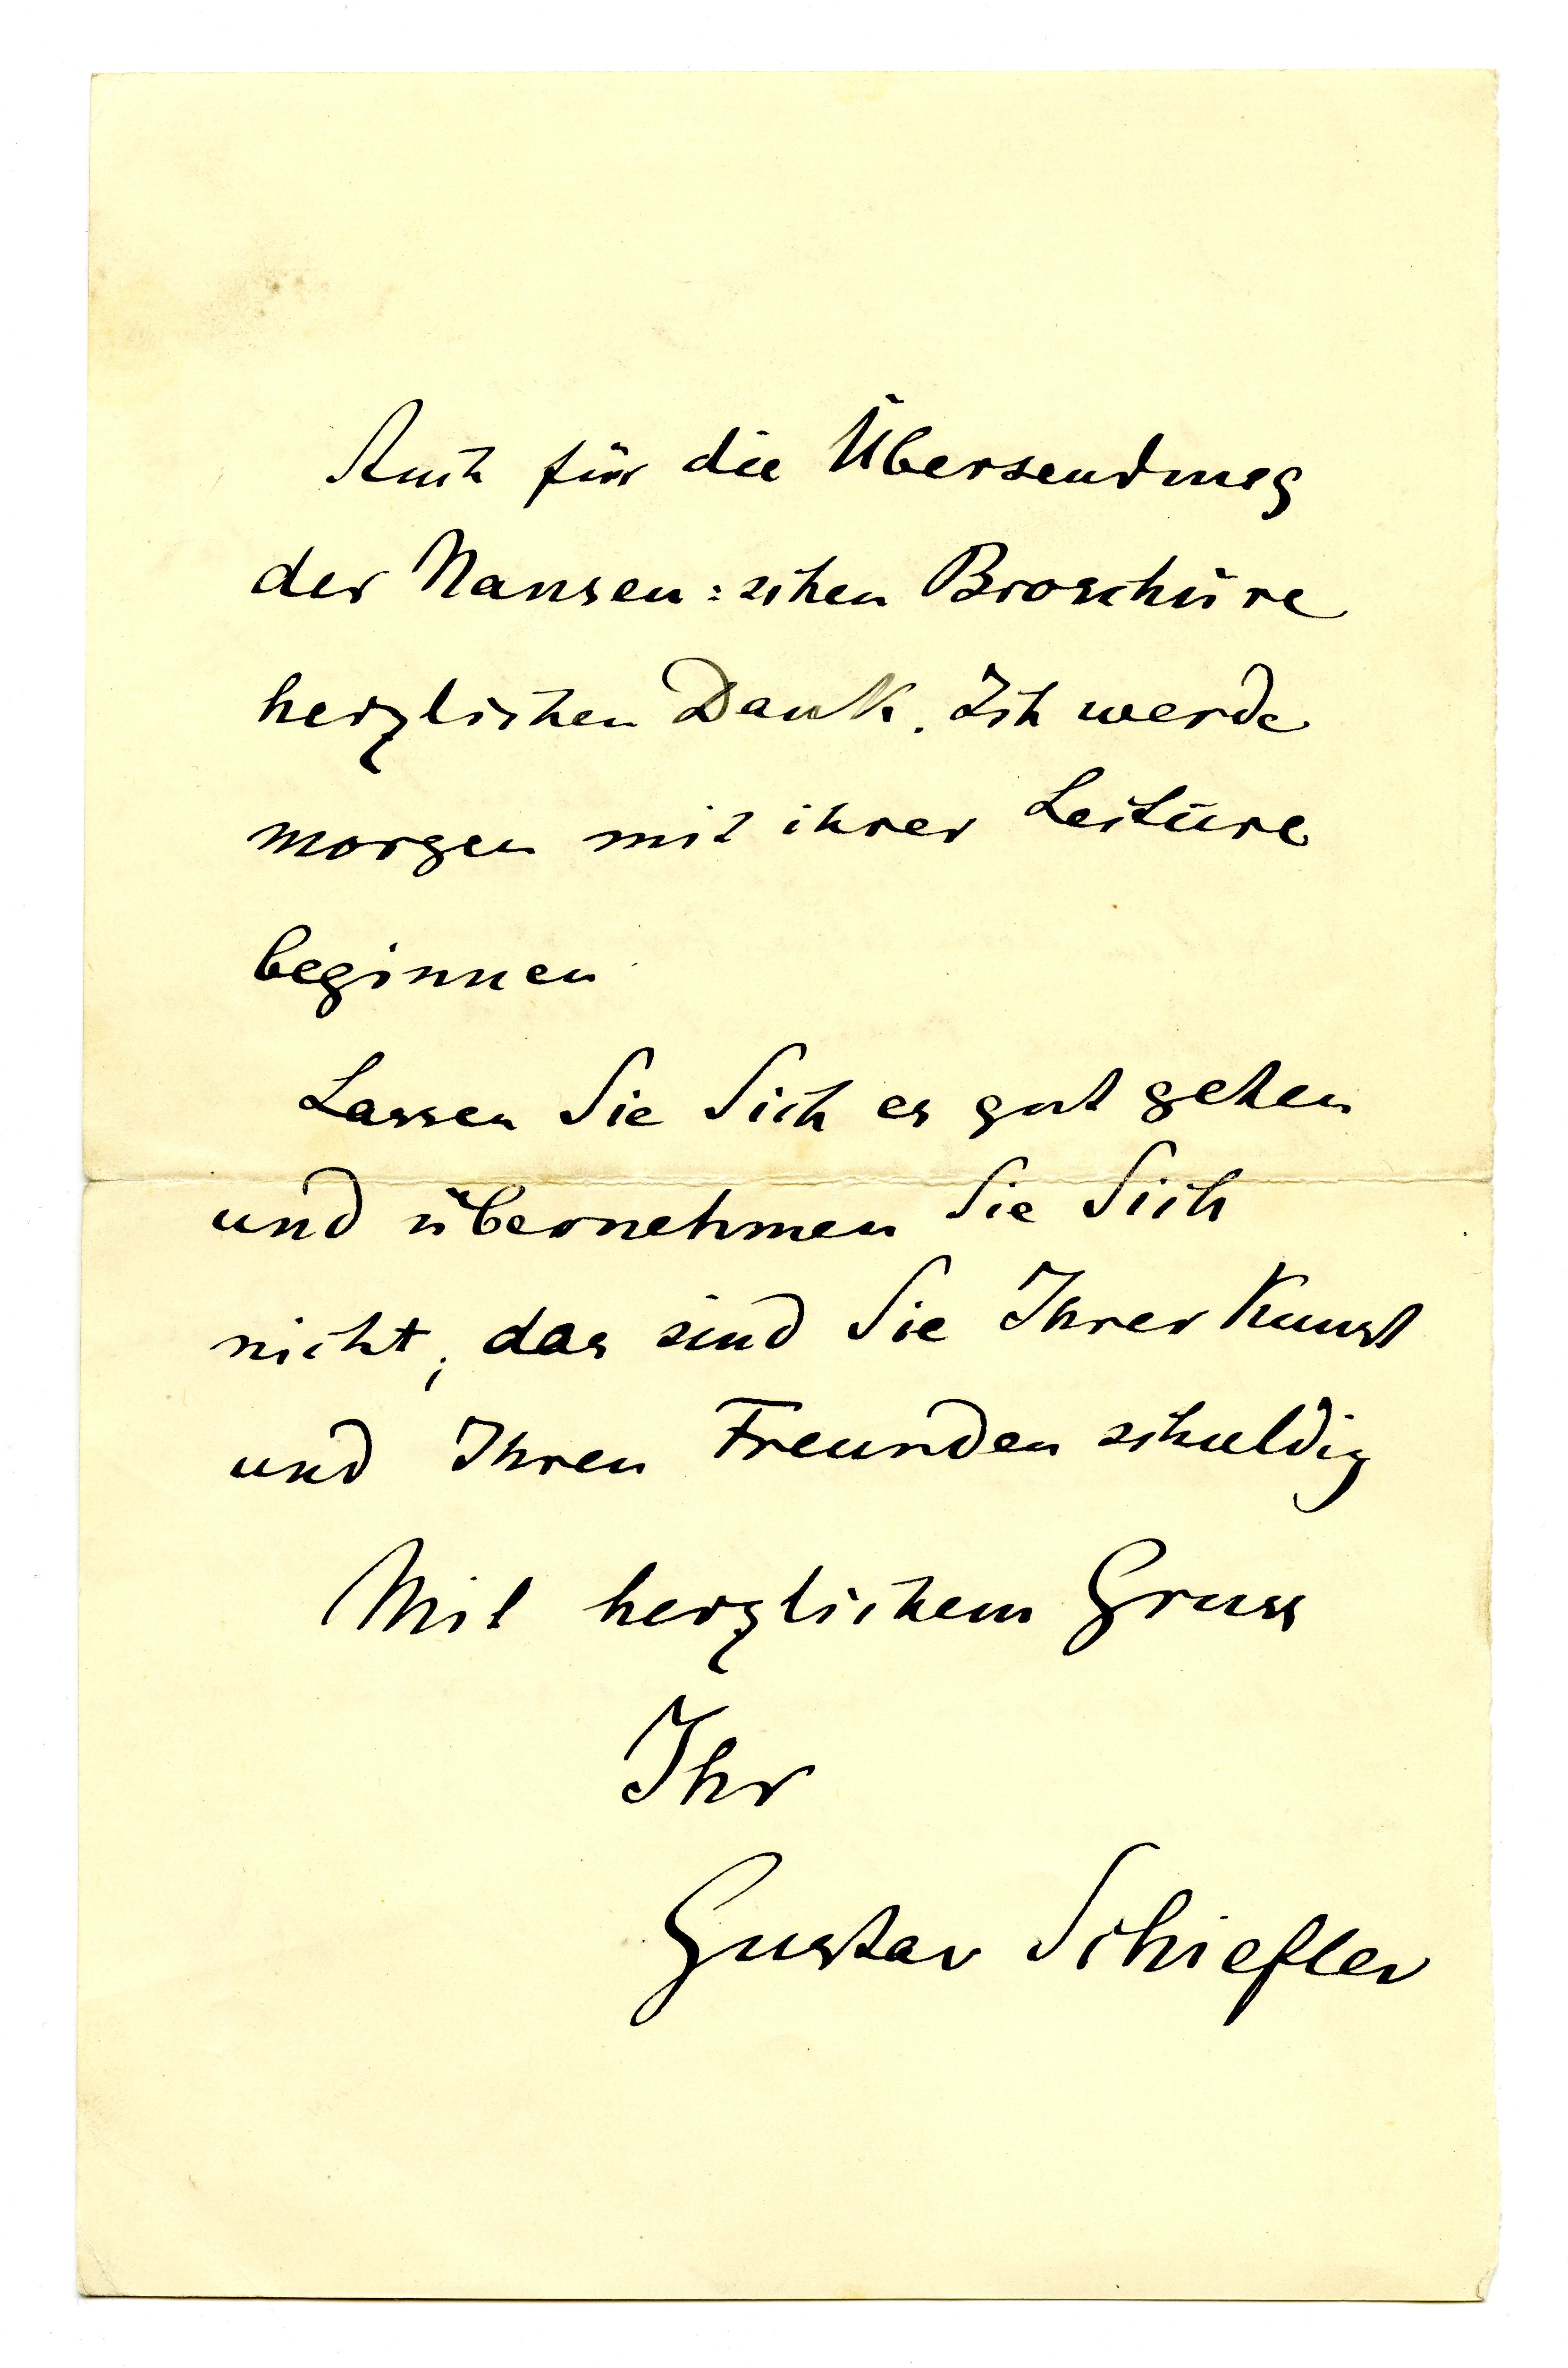 Auch für die Übersendung
der Nansen:schen Broschüre
herzlichen Dank. Ich werde
morgen mit ihrer Lectüre
beginnen.
Lassen Sie Sich es gut gehen
und übernehmen Sie Sich
nicht; das sind Sie Ihrer Kunst
und Ihren Freunden schuldig
Mit herzlichem Gruss
Ihr
Gustav Schiefler